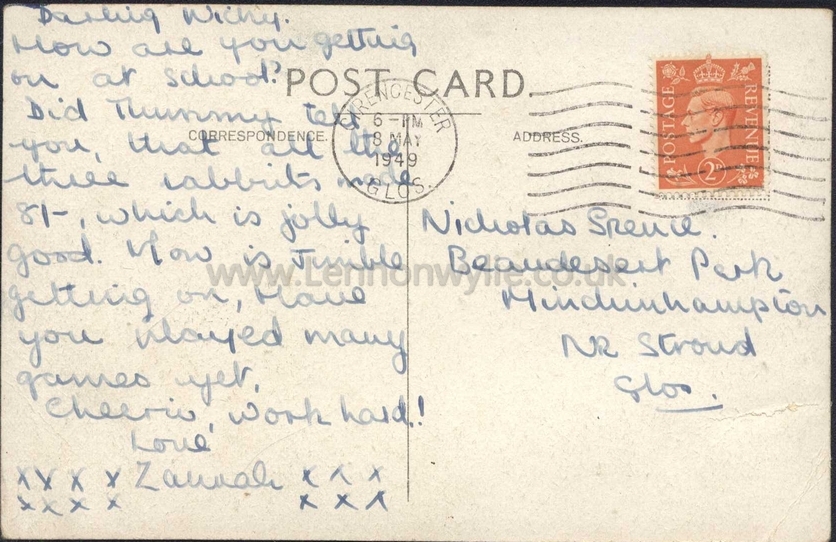 Darling Nicky.
How are you getting
on at School?
Did Thummy tell
you, that all the
three rabbits made
8/-, which is jolly
good. How is Jumble
getting on, Have
you played many
games yet,
Cheerio, work hard!
Love
x x x x Zannah x x x
x x x x x x x
POST CARD.
CORRESPONDENCE.
ADDRESS.
CIRENCESTER
6 - PM
8 MAY
1949
GLOS.
POSTAGE
REVENUE
2D
Nicholas Spence.
Beaudesert Park
Minchinhampton
NR Stroud
Glos.
www.Lennonwylie.co.uk